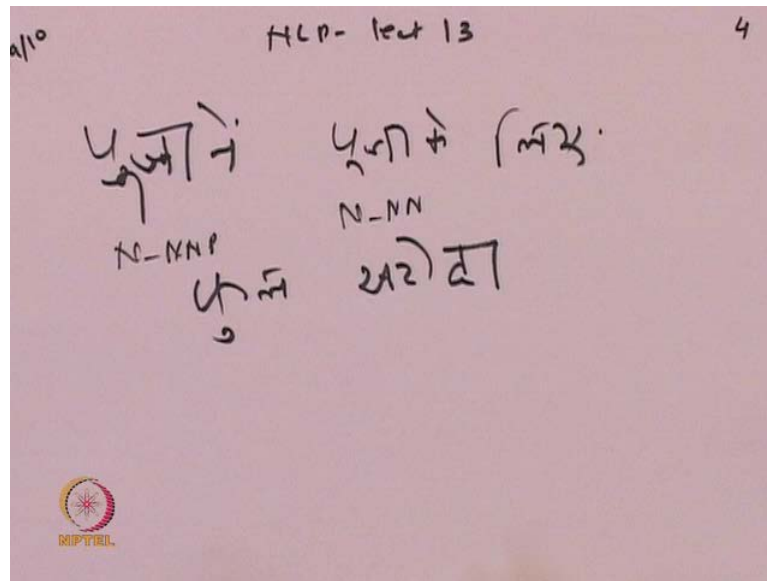 NLP- lect 13 4
पुजा ने पूजा के लिए
N-NNP N-NN
फुल खरीदा
NPTEL